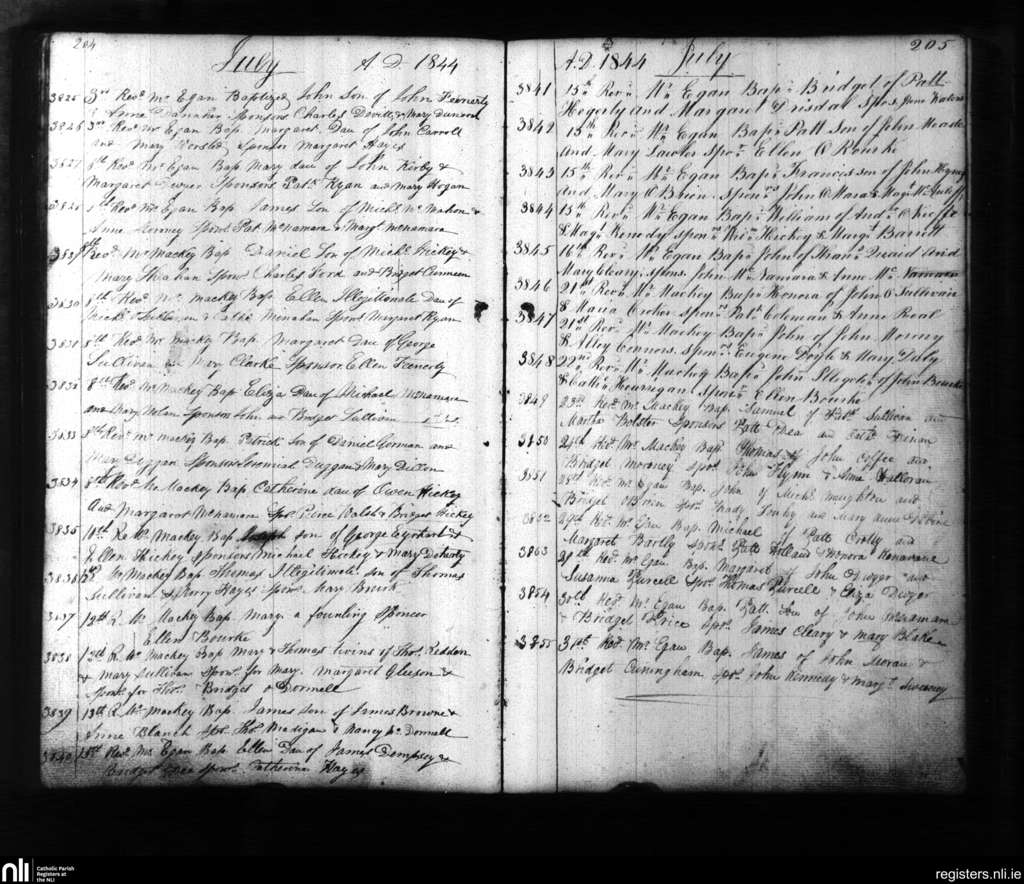 204
July A D. 1844
3825 3rd Revd. Mr Egan Baptized John Son of John Feenerty
& Anne Danaher Sponsors Charles Devitt & Mary Dunivan
3826 3rd Revd Mr Egan Bap. Margaret Dau of John Carroll
and Mary Sponsor Margaret Hayes
3827 8th Revd Mr Egan Bap Mary dau of John Kirby &
Margaret Sponsors Patt Ryan and Mary Hogan
3828 Revd Mr Egan Bap James Son of Michl Mc Mahon &
Anne Spors Pat McNamara & Margt McNamara
8th Revd Mr Mackey Bap Daniel Son of Michl Hickey &
Mary Spors Charles Ford and Bridget
3830 8th Revd Mr Mackey Bap. Ellen Illegitimate Dau of
Monahan Spors Margaret Ryan
3831 8th Revd Mr Mackey Bap. Margaret Dau of George
Sullivan Mary Clarke Sponsor Ellen Feenerty
3832 8th Revd Mr Mackey Bap Eliza Dau of Michael McNamara
and Mary Nolan Sponsors John and Bridget Sullivan
3833 8th Revd Mr Mackey Bap. Patrick Son of Daniel Gorman and
Mary Duggan Sponsors Jeremiah Duggan & Mary
3834 8th Revd Mr Mackey Bap Catherine dau of Owen Hickey
and Margaret McNamara Spr Peirce Walsh & Bridget Hickey
3835 10th Rev Mr Mackey Bap Joseph son of George &
Ellen Hickey sponsors Michael Hickey & Mary Doherty
3836 Mr Mackey Bap. Thomas Illegitimate son of Thomas
Sullivan & Hayes Spors. Mary
3837 12th R. Mr Mackey Bap Mary a founling Sponcer
Ellen Bourke
3838 13th R. Mr Mackey Bap Mary & Thomas twins of Thos. Reddon
& Mary Sullivan Spors. for Mary. Margaret Gleeson &
Spors. for Thos. Bridget O Donnell
3839 13th R. Mr Mackey Bap. James son of James Browne &
Anne Blanch Spr. Thos Madigan & Nancy Mc Donnell
3840 15th Revd. Mr Egan Bap Ellen Dau of James Dempsey &
Bridget Shea Spors. Catherine Hayes
205
A.D. 1844 July
3841 15th Revd. Mr. Egan Bap. Bridget of Patt
Hogerty and Margaret Drisdal Spos. Jane Waters
3842 15th Revd. Mr. Egan Bap. Patt Son of John Meade
And Mary Lawler Spor. Ellen O Rourke
3843 15th Revd. Mr. Egan Bap. Francis son of John
And Mary O Brien. Spons John O Mara & Mary
3844 15th Revd. Mr. Egan Bap. William of Andw. O Keeffe
& Mary Kenedy spons Wm. Hickey & Margt Barrett
3845 16th Revd. Mr. Egan Bap. John of and
Mary Cleary. spons. John Mc Namara & Anne Mc Namara
3846 21st Revd. Mr. Mackey Bap. Honora of John O Sullivan
& Maria Croker spons Patt Coleman & Anne Real
3847 21st Revd. Mr. Mackey Bap. John of John Money
& Alley Connors. Spons Eugene Doyle & Mary Daly
3848 22nd Revd. Mr. Mackey Bap. John Illegite. of John Bourke
& Cathe. Spors Ellen Bourke
3849 23rd Revd. Mr. Mackey Bap. Samuel of Patt Sullivan and
Martha Bolster Sponsors Patt Shea and
3850 24th Revd. Mr. Mackey Bap. Thomas of John and
Bridget Moroney spor. John Flynn & Anne Halloran
3851 28th Revd. Mr Egan Bap. John of Michl Naughton and
Bridget O Brien spor. Thady and Mary Anne O Brien
3852 29th Revd. Mr Egan Bap. Michael of Patt and
Margaret Bartly spors. Patt Holland & Honora
3853 29th Revd. Mr. Egan Bap. Margaret of John Dwyer and
Susanna Purcell spor. Thomas Purcell & Eliza Dwyer
3854 30th Revd. Mr. Egan Bap. Patt Son of John McNamara
& Bridget Price spor. James Cleary & Mary Blake
3855 31st Revd Mr. Egan Bap. James of John Moran &
Bridget Cuningham spor. John Kennedy & Margt. Sweeney
nli
Catholic Parish
Registers at
the NLI
registers.nli.ie